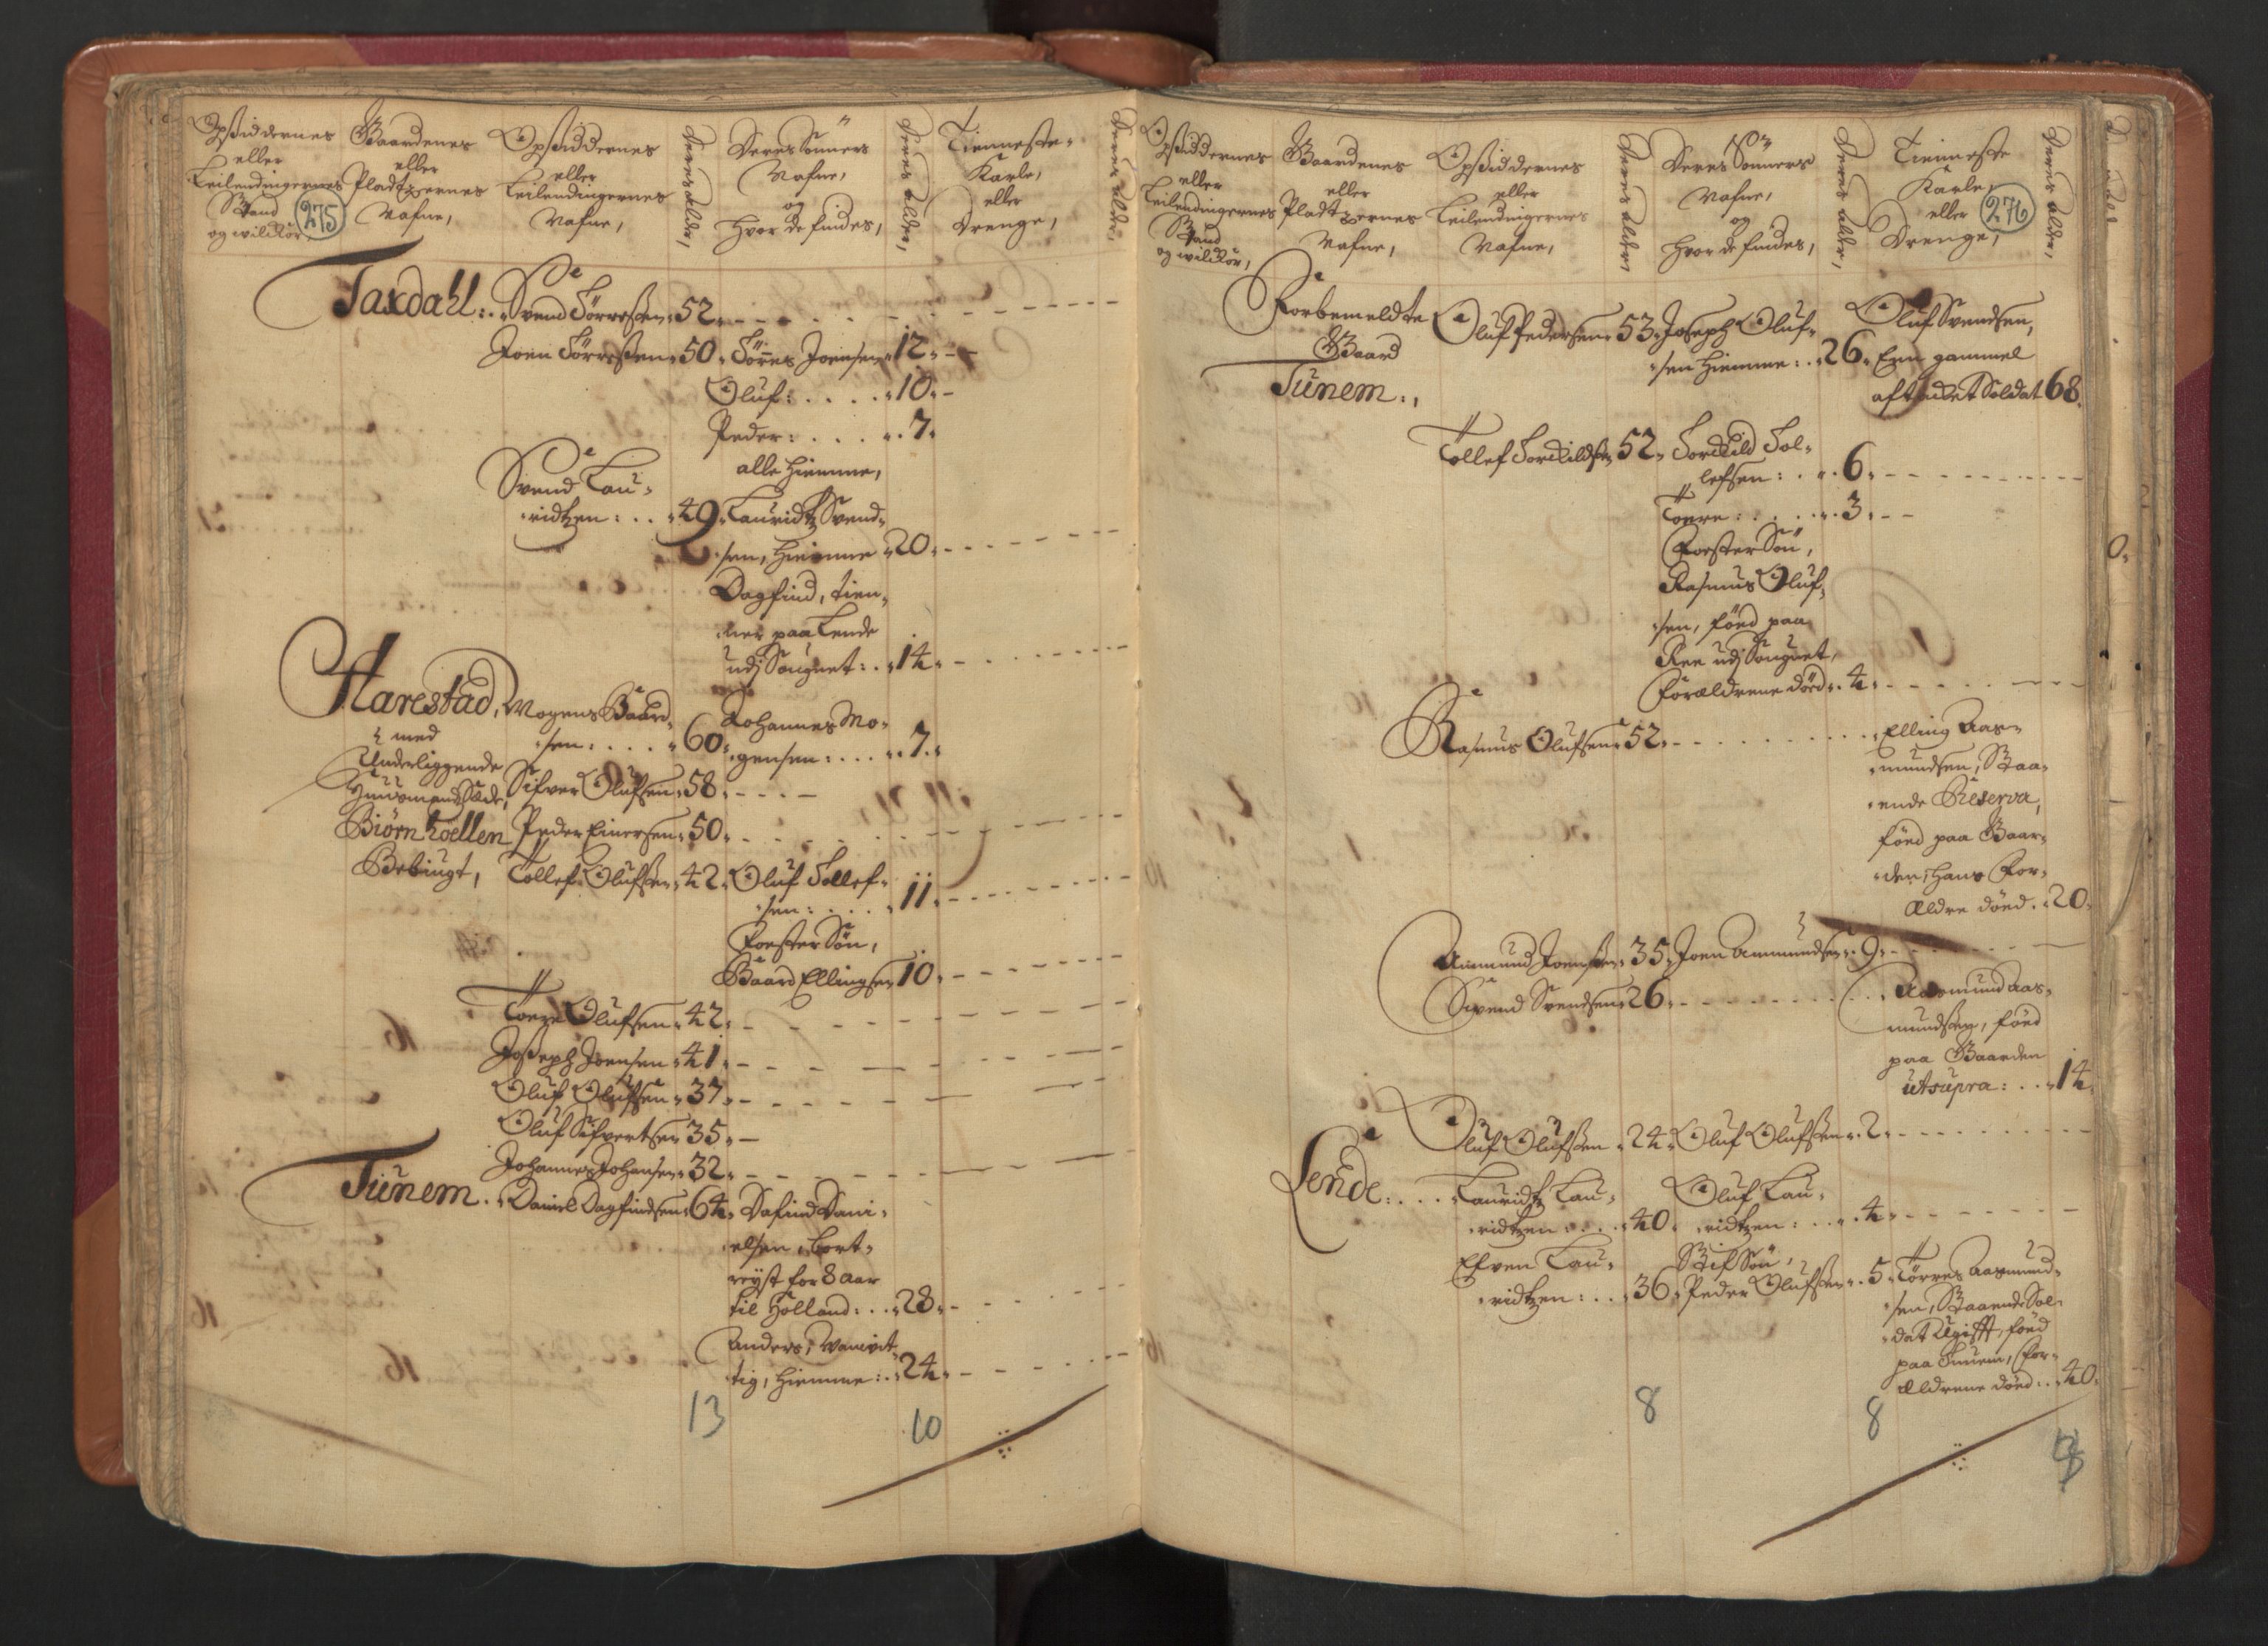 Opsiddernes
eller
Leilendingernes
Stand
og wilckor,
275
Gaardenes
eller
Pladtzernes
Nafne,
Opsiddernes
eller
Leilendingernes
Nafne,
Deres alder,
Deres Sönners
Nafne,
og
hvor de findes,
Deres alder,
Tienneste-
Karle,
eller
Drenge,
Deres alder,
Taxdahl: Svend Törresen 52
Joen Törresen 50 Törres Joensen 12
Oluf: 10
Peder: 7
alle hiemme,
Svend Lau-
ridtzen: 49 Lauridtz Svend-
sen, hiemme 20
Dagfind, tien-
ner paa Lende
udj Sougnet: 14
Harestad, Mogens Baard-
sen: 60 Johannes Mo-
gensen: 7
med
Underliggende
Huusmands Sæde,
Biørn Koellen
Bebiugt,
Sifver Olufsen 58
Peder Einersen 50
Tollef Olufsen 42 Oluf Tollef-
sen: 11
Foester Sön,
Baard Ellingsen 10
Toere Olufsen 42
Joseph Joensen 41
Oluf Olufsen 37
Oluf Sifvertsen 35
Johannes Johansen 32
Tünem. Daniel Dagfindsen 64 Dafind Dani-
elsen, bort-
reÿst for 8 aar
til Holland: 28
Anders, Vanvit-
tig, hiemme: 24
13 10
Opsiddernes
eller
Leilendingernes
Stand
og wilckor,
Gaardenes
eller
Pladtzernes
Nafne,
Opsiddernes
eller
Leilendingernes
Nafne,
Deres alder
Deres Sönners
Nafne,
og
hvor de findes,
Deres alder,
Tienneste
Karle,
eller
Drenge,
276
Deres alder,
Forbemeldte
Gaard
Tünem.
Oluf Pedersen 53 Joseph Oluf-
sen hiemme: 26
Oluf Svendsen,
Een gammel
aftacket Soldat 68
Tollef Torckildsen 52 Torckild Tol-
lefsen: 6
Toere: 3
Foester Sön,
Rasmus Oluf-
sen, föed paa
Ree udj Sougnet,
Forældrene död 4
Rasmus Olufsen 52 Elling Aas-
mundsen, Staa-
ende Reserva,
föed paa Gaar-
den, hans For-
Ældre döed 20
Aamund Joensen 35 Joen Ammundsen 9
Sivend Svendsen 26 Aasmund Aas-
mundsen, föed
paa Gaarden
ut supra: 14
Oluf Olufsen 24 Oluf Olufsen 2
Lende: Lauridtz Lau-
ridtzen: 40 Oluf Lau-
ridtzen: 4
Efven Lau-
ridtzen: 36
Stif Sön,
Peder Olufsen 5 Törres Aasmund-
sen, Staaende Sol-
dat Ugifft, föed
paa Tunem, For-
Ældrene döed: 40
8 8